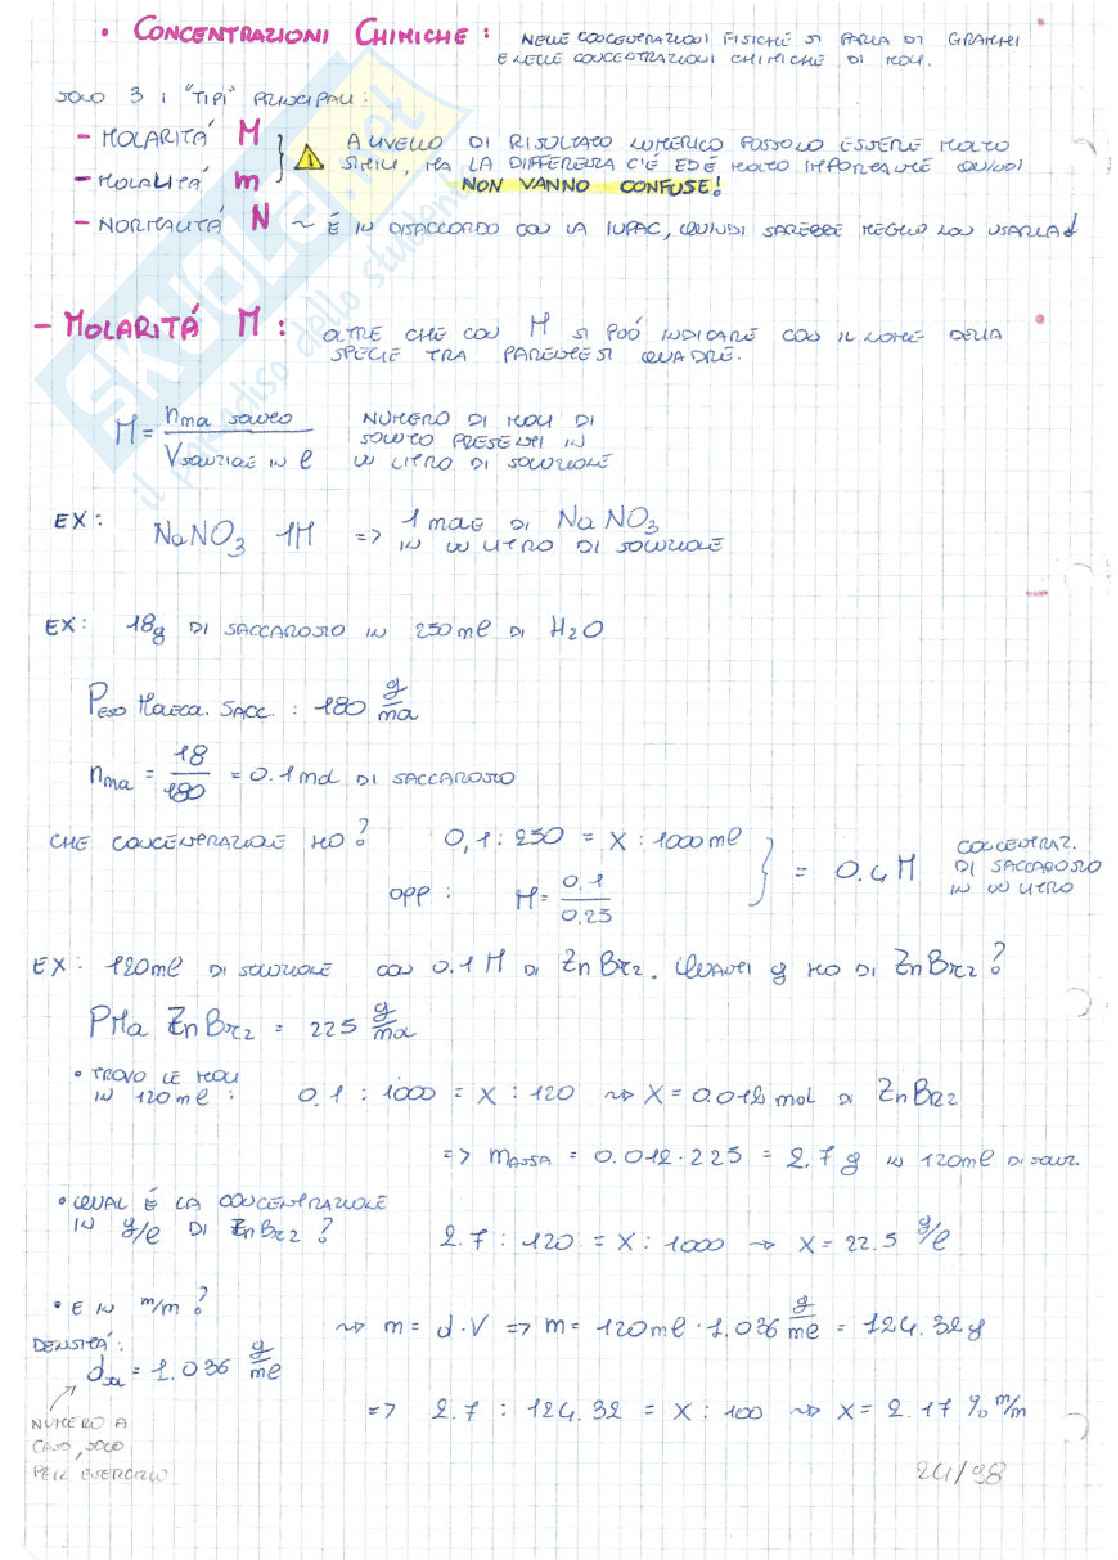 • CONCENTRAZIONI CHIMICHE: NELLE CONCENTRAZIONI FISICHE SI PARLA DI GRAMMI
E NELLE CONCENTRAZIONI CHIMICHE DI MOLI.
SONO 3 I "TIPI" PRINCIPALI:
- MOLARITÁ M
- MOLALITÁ m
A LIVELLO DI RISULTATO NUMERICO POSSONO ESSERE MOLTO
SIMILI, MA LA DIFFERENZA C'É ED É MOLTO IMPORTANTE QUINDI
NON VANNO CONFUSE!
- NORMALITÁ N ~ É IN DISACCORDO CON LA IUPAC, QUINDI SAREBBE MEGLIO NON USARLA
- MOLARITÁ M: OLTRE CHE CON M SI PUÓ INDICARE CON IL NOME DELLA
SPECIE TRA PARENTESI QUADRE.
M = n mol soluto / V soluzione in l NUMERO DI MOLI DI
SOLUTO PRESENTI IN
UN LITRO DI SOLUZIONE
EX: NaNO3 1M => 1 mole DI NaNO3
IN UN LITRO DI SOLUZIONE
EX: 18g DI SACCAROSIO IN 250 ml DI H2O
PESO MOLECOL. SACC.: 180 g/mol
n mol = 18/180 = 0.1 mol DI SACCAROSIO
CHE CONCENTRAZIONE HO? 0,1 : 250 = X : 1000 ml
OPP: M = 0,1/0,25
} = 0.4 M CONCENTRAZ.
DI SACCAROSIO
IN UN LITRO
EX: 120 ml DI SOLUZIONE CON 0.1 M DI ZnBr2. QUANTI g HO DI ZnBr2?
PMol ZnBr2 = 225 g/mol
• TROVO LE MOLI
IN 120 ml: 0,1 : 1000 = X : 120 ⇝ X = 0.012 mol DI ZnBr2
=> mMASSA = 0.012 · 225 = 2.7 g IN 120 ml DI SOLUZ.
• QUAL É LA CONCENTRAZIONE
IN g/l DI ZnBr2? 2.7 : 120 = X : 1000 → X = 22.5 g/l
• E IN m/m?
DENSITÁ:
dsol = 1.036 g/ml
⇝ m = d · V => m = 120 ml · 1.036 g/ml = 124.32 g
NUMERO A
CASO, SOLO
PER ESERCIZIO
=> 2.7 : 124.32 = X : 100 ⇝ X = 2.17 % m/m
24/98
SKUOLA.net
il paradiso dello studente